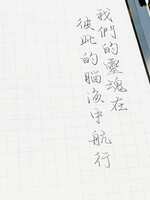 我們的靈魂在
彼此的腦海中航行